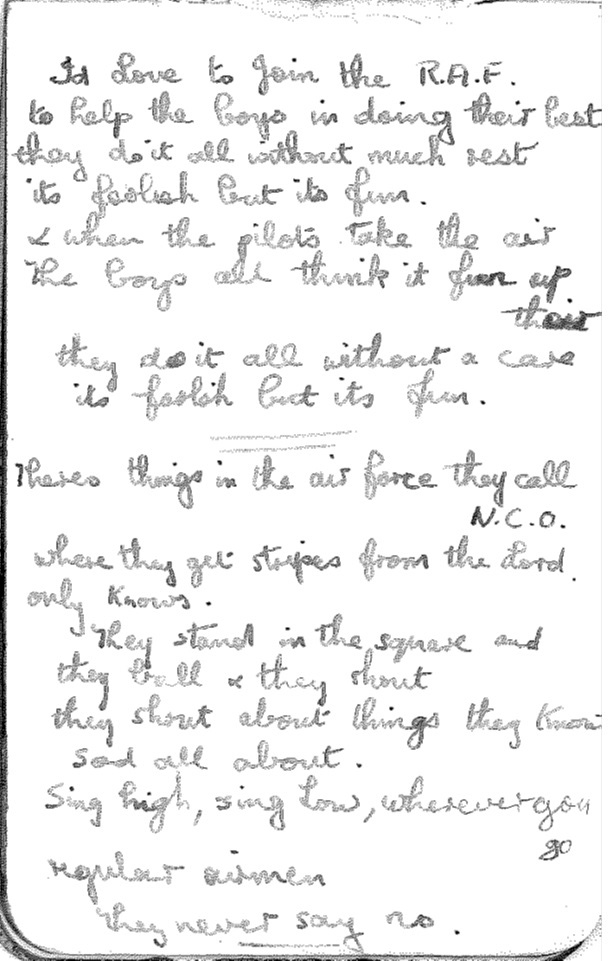 I'd Love to Join the R.A.F.
to help the boys in doing their best
they do it all without much rest
its foolish but its fun.
& when the pilots take the air
The boys all think it fun up
their
they do it all without a care
its foolish but its fun.
Theres things in the air force they call
N.C.O.
where they get stripes from the Lord
only Knows.
They stand in the square and
they ball & they shout
they shout about things they Know
sod all about.
Sing high, sing Low, wherever you
go
regular airmen
They never say no.